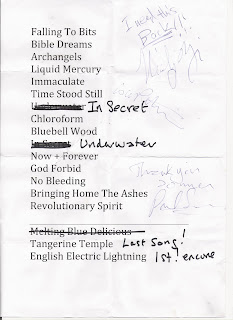 Falling To Bits
Bible Dreams
Archangels
Liquid Mercury
Immaculate
Time Stood Still
Underwater In Secret
Chloroform
Bluebell Wood
In Secret Underwater
Now + Forever
God Forbid
No Bleeding
Bringing Home The Ashes
Revolutionary Spirit
Melting Blue Delicious
Tangerine Temple Last Song!
English Electric Lightning 1st! encore
Thank you